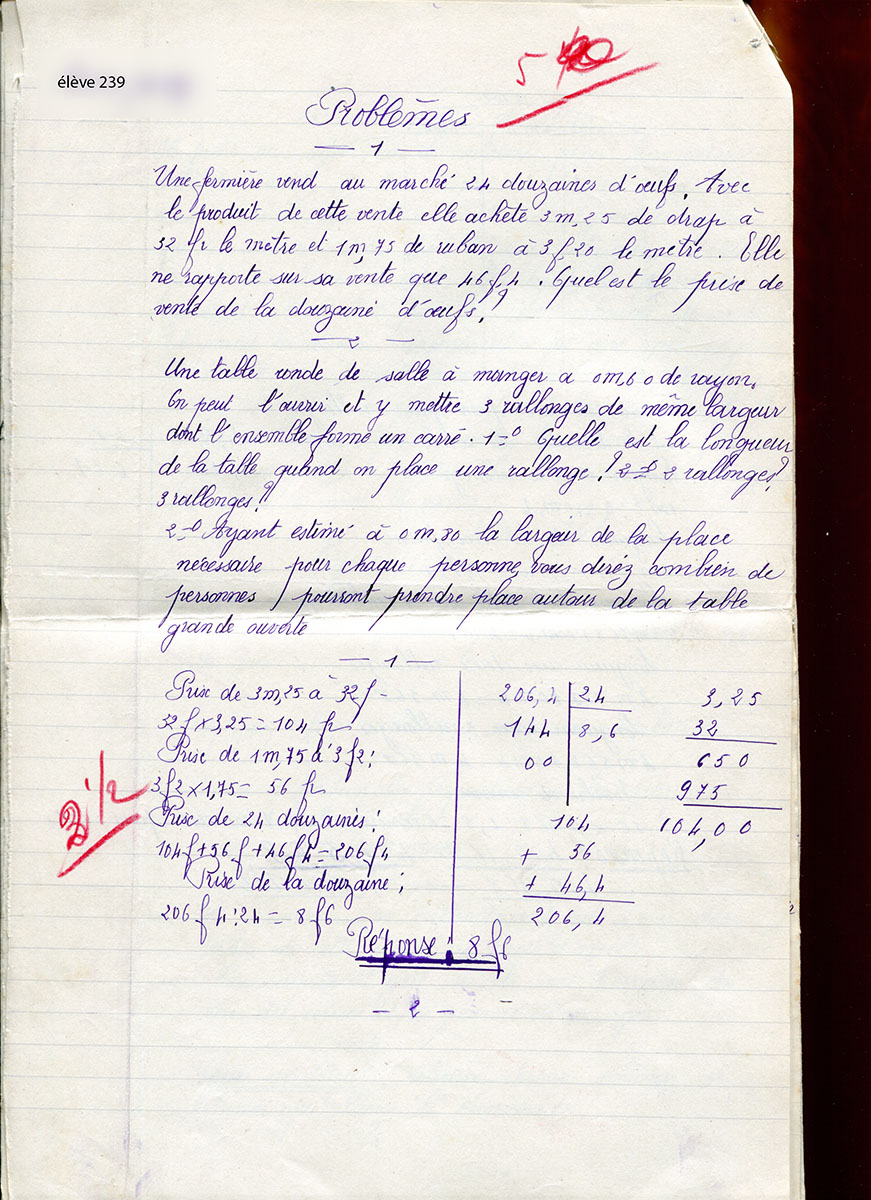 élève 239
5
Problèmes
— 1 —
Une fermière vend au marché 24 douzaines d'œufs. Avec
le produit de cette vente elle achète 3m,25 de drap à
32 fr le mètre et 1m,75 de ruban à 3f,20 le mètre. Elle
ne rapporte sur sa vente que 46f,4. Quel est le prise de
vente de la douzaine d'œufs?
— 2 —
Une table ronde de salle à manger a 0m,60 de rayon.
On peut l'ouvrir et y mettre 3 rallonges de même largeur
dont l'ensemble forme un carré. 1=0 Quelle est la longueur
de la table quand on place une rallonge? 2 rallonges?
3 rallonges?
2=0 Ayant estimé à 0m,80 la largeur de la place
nécessaire pour chaque personne, vous direz combien de
personnes pourront prendre place autour de la table
grande ouverte
— 1 —
Prise de 3m,25 à 32f -
32f x 3,25 = 104 fr
Prise de 1m,75 à 3f2:
3f2 x 1,75 = 56 fr
Prise de 24 douzaines:
104f + 56f + 46f4 = 206f4
Prise de la douzaine:
206f4 : 24 = 8f6
206,4 | 24
144 | 8,6
00
104
+ 56
+ 46,4
206,4
3,25
32
650
975
104,00
1/2
Réponse: 8f6
— 2 —